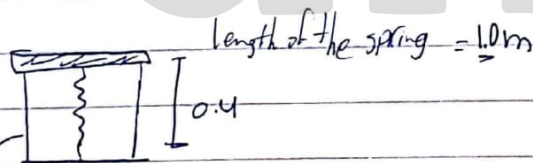 length of the spring = 1.0m
0.4